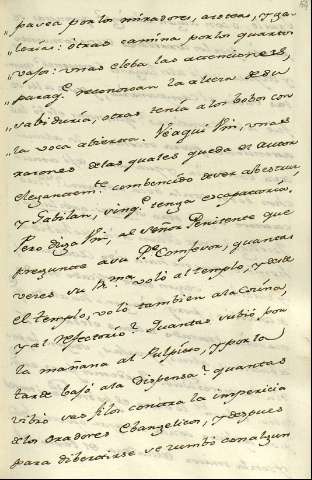 „pasea por los miradores, azoteas, y ga-
„lerias: otras camina por los quartos
„vajos: unas eleba las atenciones,
„paraq.e reconoscan la alteza de su
„sabiduría, otras tenía a los bobos con
„la voca abierta. Veaqui Vm, unas
razones de las quales queda el autor
elegantem.te combencido de ser abestruz,
y Gabilan, sinq.e tenga escapatoria,
Pero diga Vm, al señor Penitente que
pregunte a su P.e Comfesor, quantas
veses su P.ma voló al templo, y desde
el templo, voló tambien a la Cosina,
y al refectorio? Quantas subió por
la mañana al Pulpito, y por la
tarde bajó ala Dispensa? quantas
vibró sus filos contra la impericia
delos Oradores Ebangelicos, y despues
para dibertirse se rumbó con algun